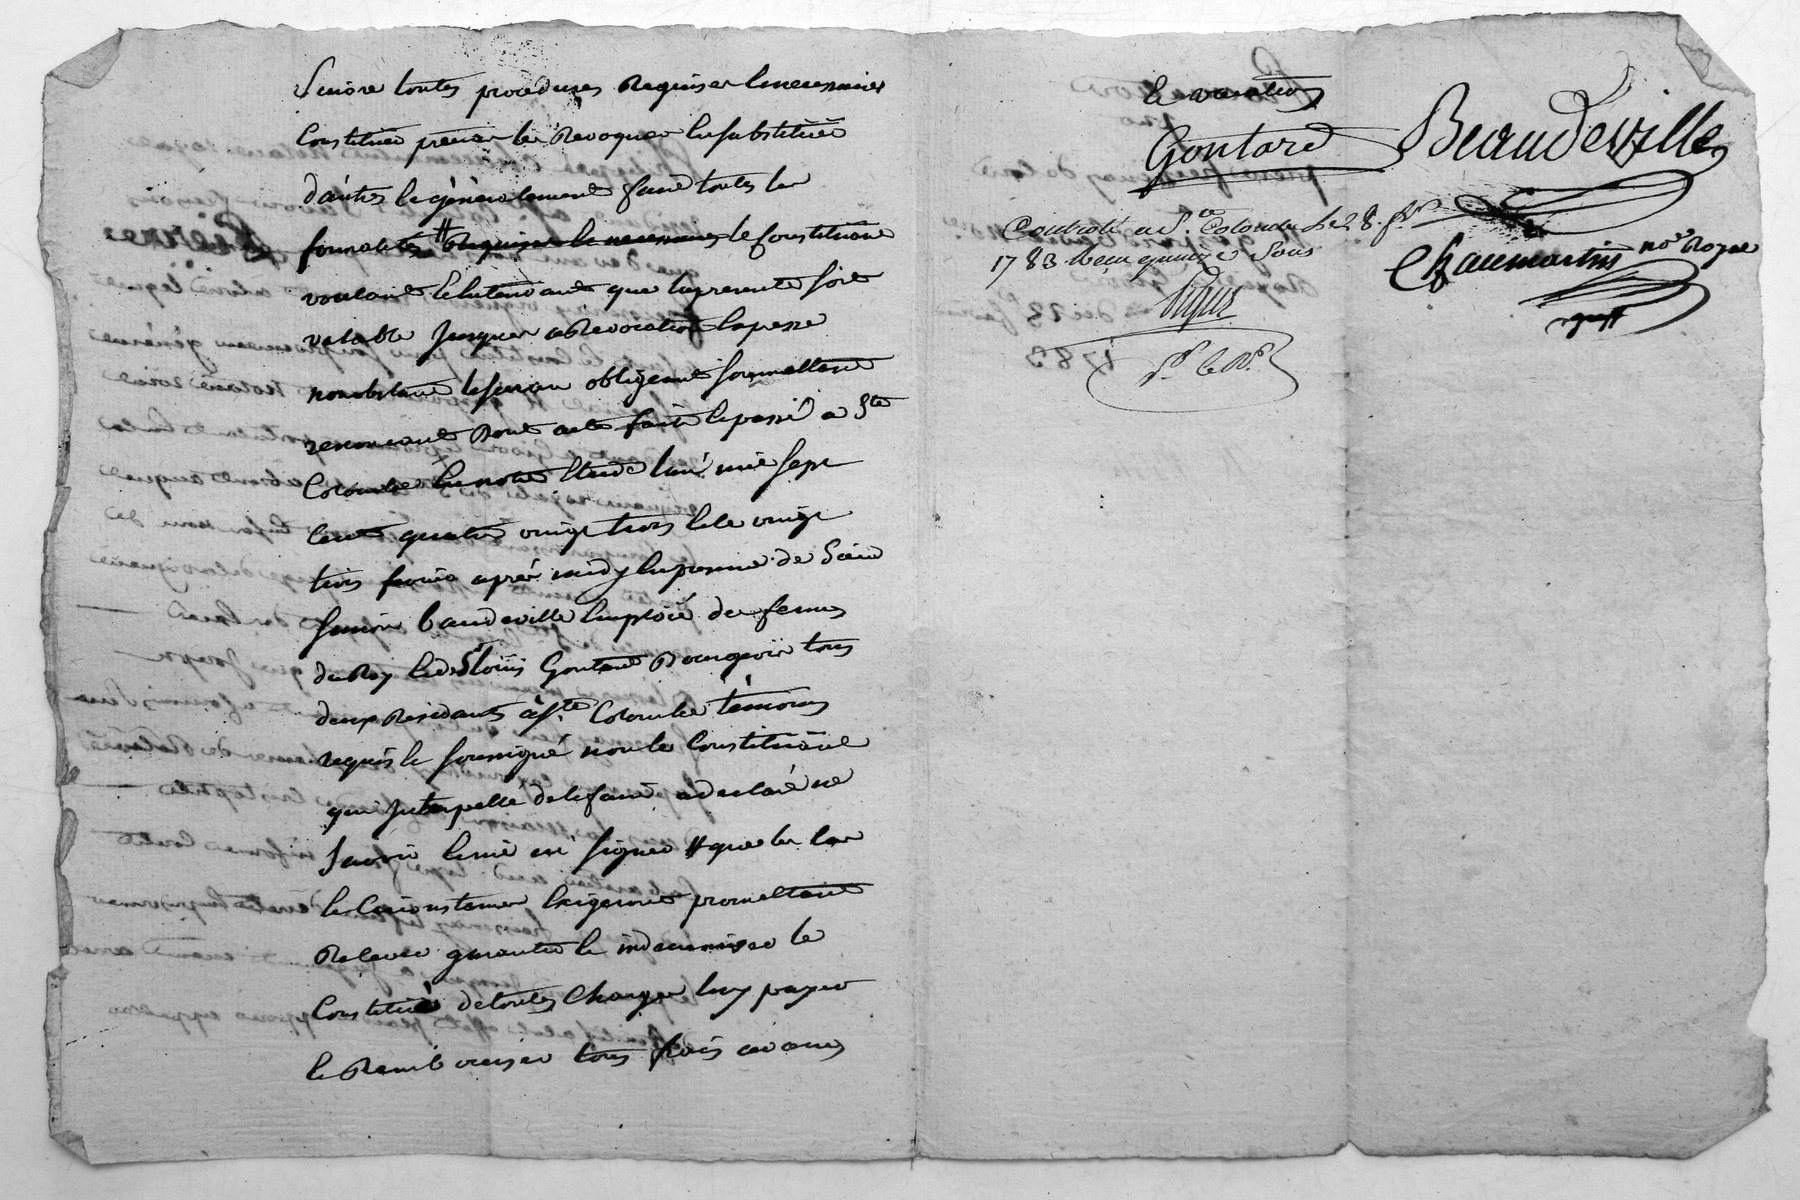 Suivre toutes procedures Requises & necessaires
Constituer procur les Revoquer en substituer
d'autres & généralement faire toutes les
formalités # Requises & necessaires le constituant
voulant & entendant que la presente soit
valable jusques a Revocation expresse
nonobstant le suran obligeant soumettant
renoncant Dont acte fait & passé a Ste
Colombe en notre Etude l'an mil sept
cent quatre vingt trois & le vingt
trois fevrier après midy en presence de Sieur
baudeville Employé des fermes
du Roy & de Sr louis Gontard Bourgeois tous
deux Residants à Ste Colombe témoins
requis & soussignés non le Constituant
qui Interpellé de le faire a declaré ne
Savoir ecrire ni signer # que les cas
& Circonstances Exigeront promettant
Relever garantir & indemniser le
Constitué de toutes Charges luy payer
& Rembourser tous frais avances
& vacations
Gontard Beaudeville
Controllé a Ste Colombe Le 28 fer
1783 Reçu quinze Sous
Chaumartin nore Royal